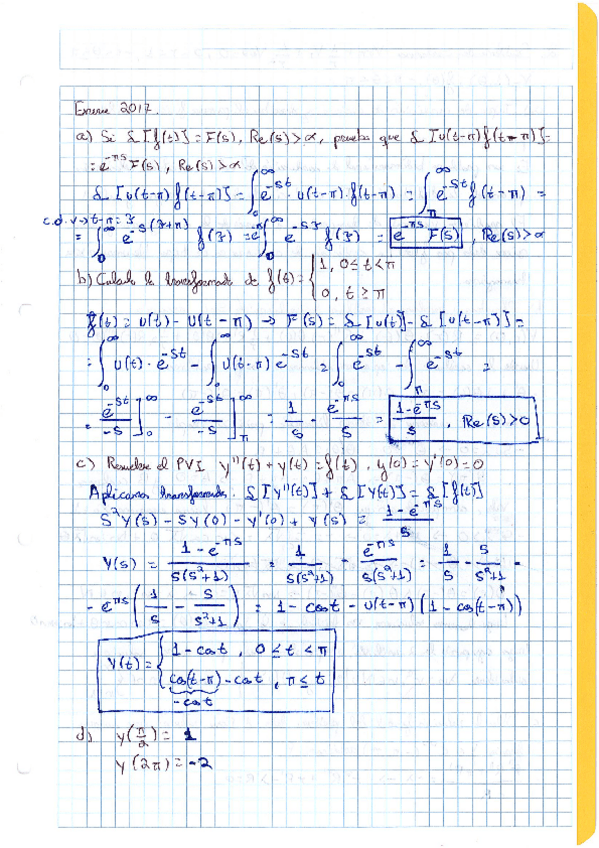 Enero 2017.
a) Si L[f(t)] = F(s), Re(s) > α, prueba que L[u(t-π)f(t-π)] =
= e^{-πs} F(s), Re(s) > α
L[u(t-π)f(t-π)] = ∫_0^∞ e^{-st} · u(t-π) · f(t-π) = ∫_π^∞ e^{-st} f(t-π) =
c.d.v → t-π = z
= ∫_0^∞ e^{-s(z+π)} f(z) = e^{-πs} ∫_0^∞ e^{-sz} f(z) = e^{-πs} F(s), Re(s) > α
b) Calcula la transformada de f(t) = { 1, 0 ≤ t < π
0, t ≥ π
f(t) = u(t) - u(t-π) → F(s) = L[u(t)] - L[u(t-π)] =
= ∫_0^∞ u(t) · e^{-st} - ∫_0^∞ u(t-π) e^{-st} = ∫_0^∞ e^{-st} - ∫_π^∞ e^{-st} =
= e^{-st}/-s ]_0^∞ - e^{-st}/-s ]_π^∞ = 1/s - e^{-πs}/s = (1-e^{-πs})/s, Re(s) > 0
c) Resuelve el PVI y''(t) + y(t) = f(t), y(0) = y'(0) = 0
Aplicamos transformada. L[y''(t)] + L[y(t)] = L[f(t)]
s²Y(s) - sy(0) - y'(0) + Y(s) = (1-e^{-πs})/s
Y(s) = (1-e^{-πs})/(s(s²+1)) = 1/(s(s²+1)) - e^{-πs}/(s(s²+1)) = 1/s - s/(s²+1) -
- e^{-πs} (1/s - s/(s²+1)) = 1 - cos t - u(t-π)(1 - cos(t-π))
y(t) = { 1 - cos t, 0 ≤ t < π
cos(t-π) - cos t, π ≤ t
- cos t
d) y(π/2) = 1
y(2π) = -2